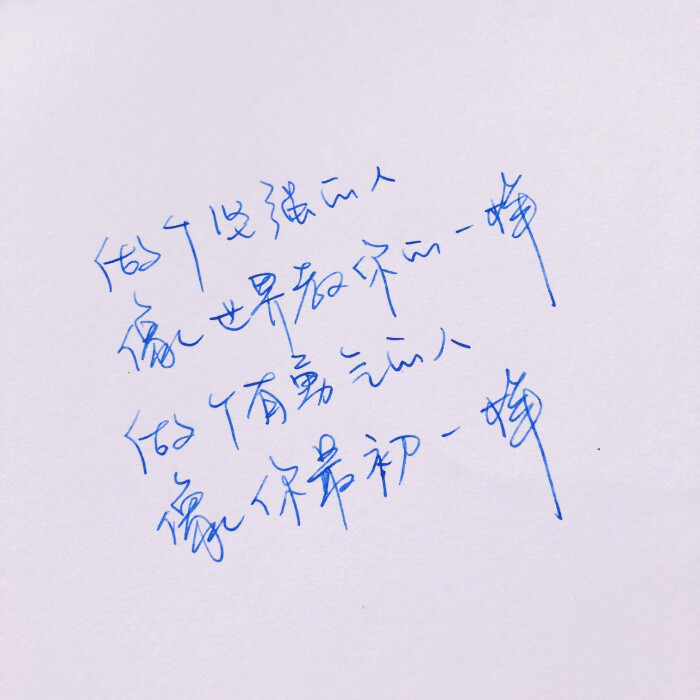 做个坚强的人
像世界教你的一样
做个有勇气的人
像你最初一样